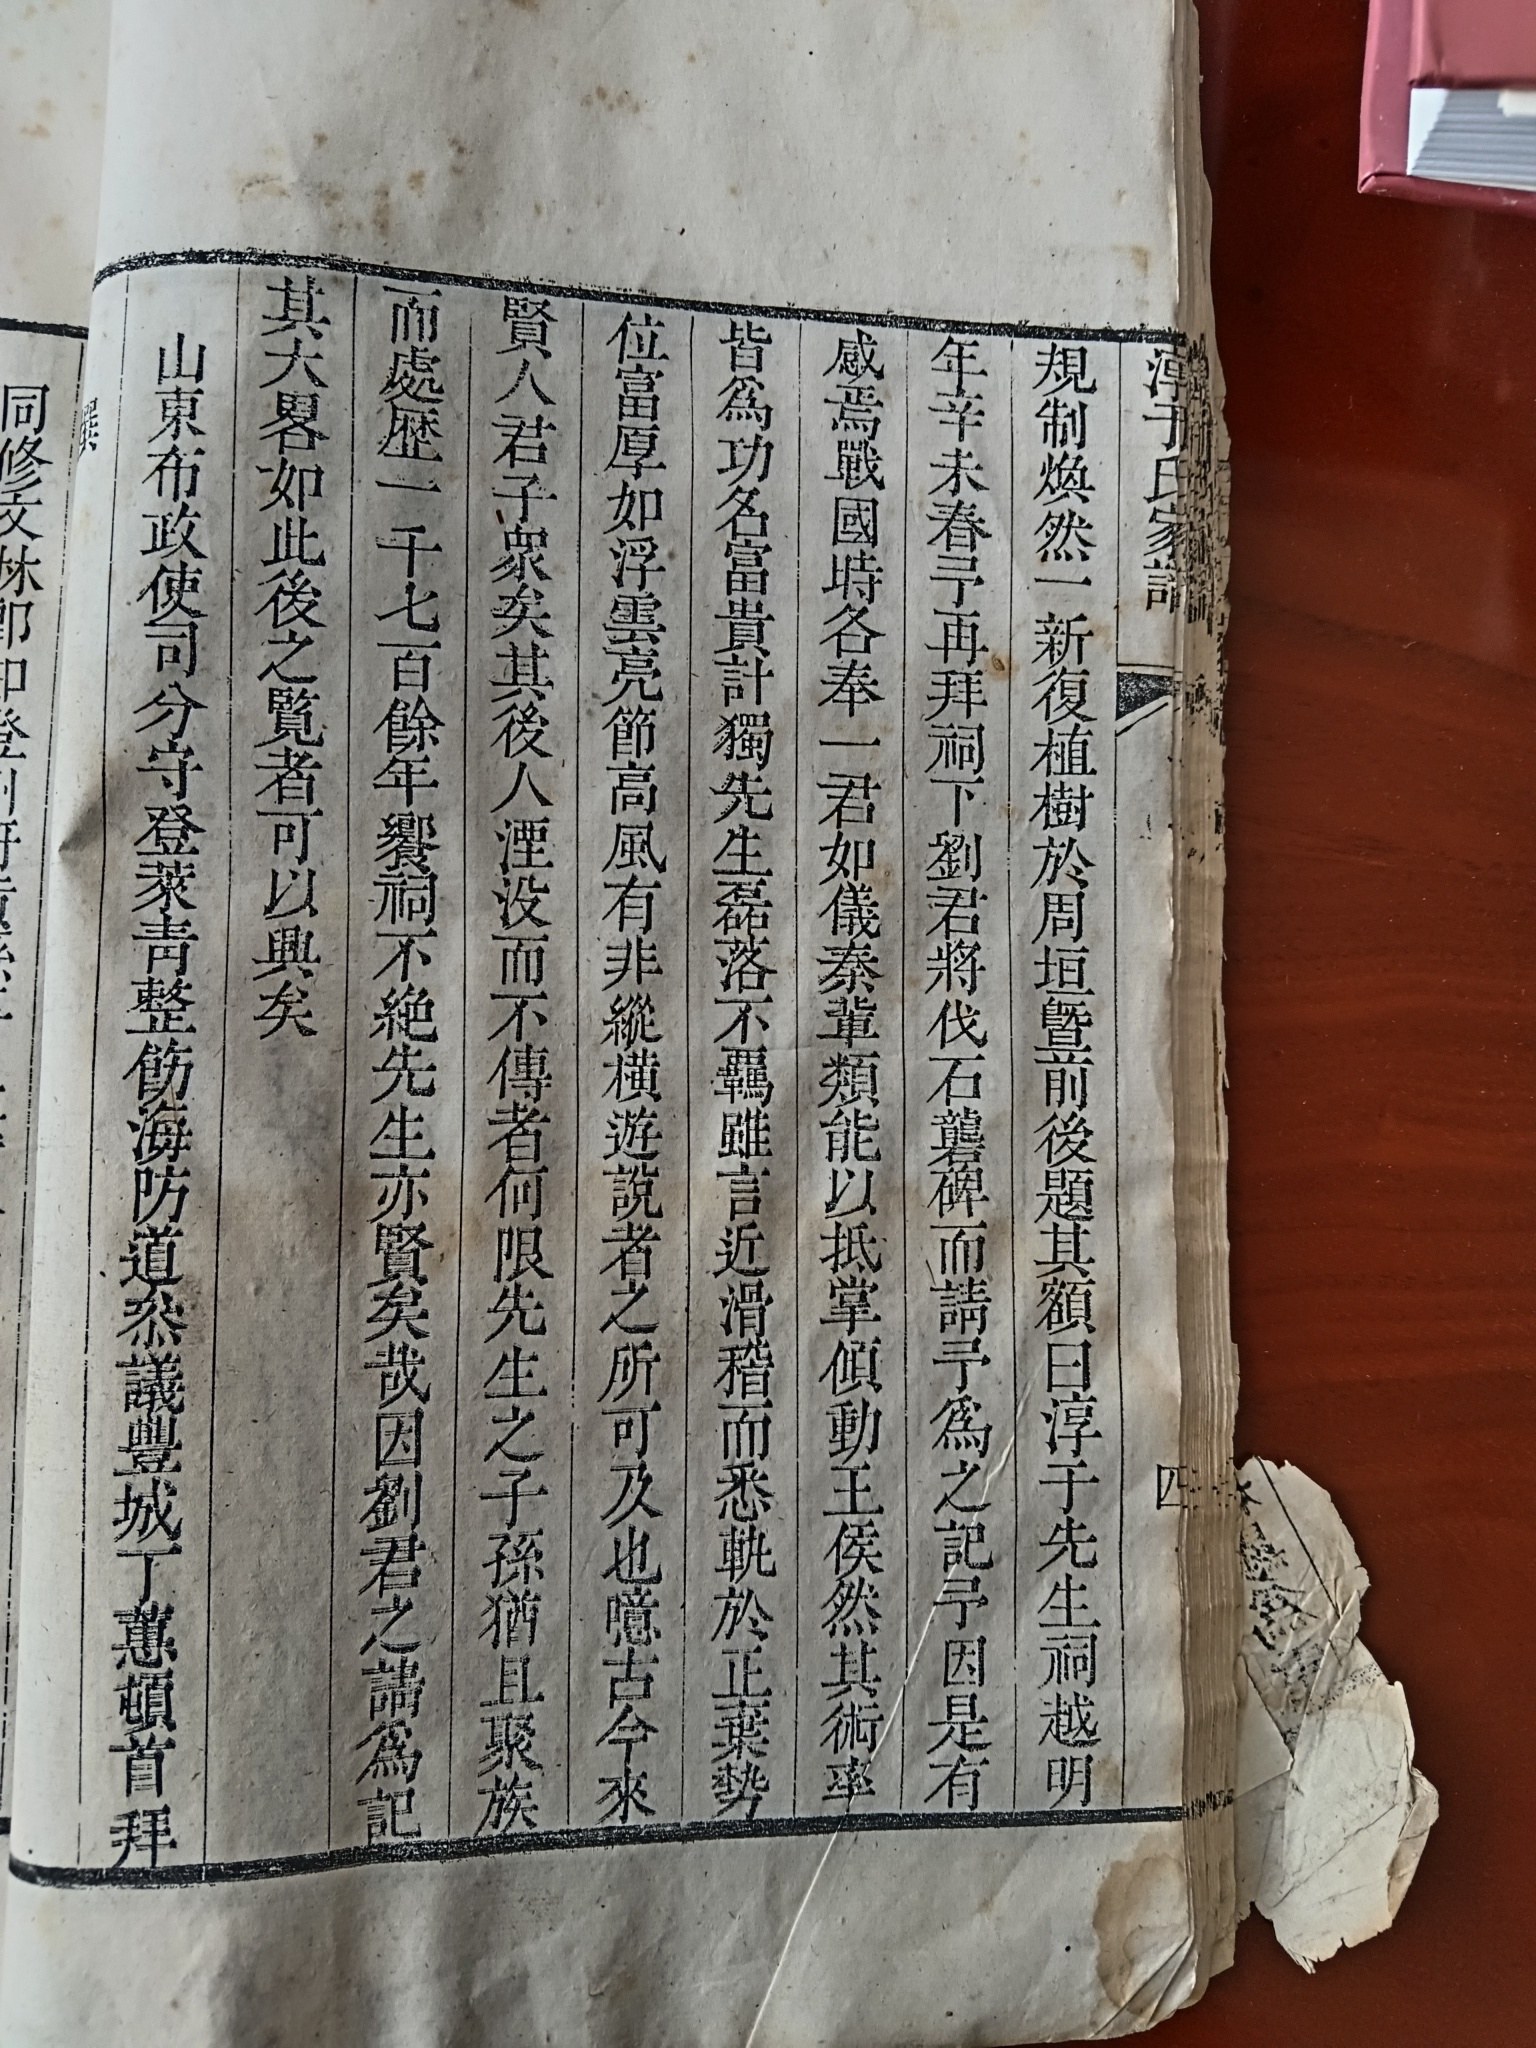 淳于氏家譜
四
規制煥然一新復植樹於周垣暨前後題其額曰淳于先生祠越明
年辛未春予再拜祠下劉君將伐石礱碑而請予爲之記予因是有
感焉戰國時各奉一君如儀秦輩類能以抵掌傾動王侯然其術率
皆爲功名富貴計獨先生磊落不羈雖言近滑稽而悉軌於正棄勢
位富厚如浮雲亮節高風有非縱橫遊說者之所可及也噫古今來
賢人君子衆矣其後人湮没而不傳者何限先生之子孫猶且聚族
而處歷一千七百餘年饗祠不絶先生亦賢矣哉因劉君之請爲記
其大畧如此後之覽者可以興矣
山東布政使司分守登萊靑整飭海防道叅議豐城丁蕙頓首拜
撰
同修文林郎知登州府